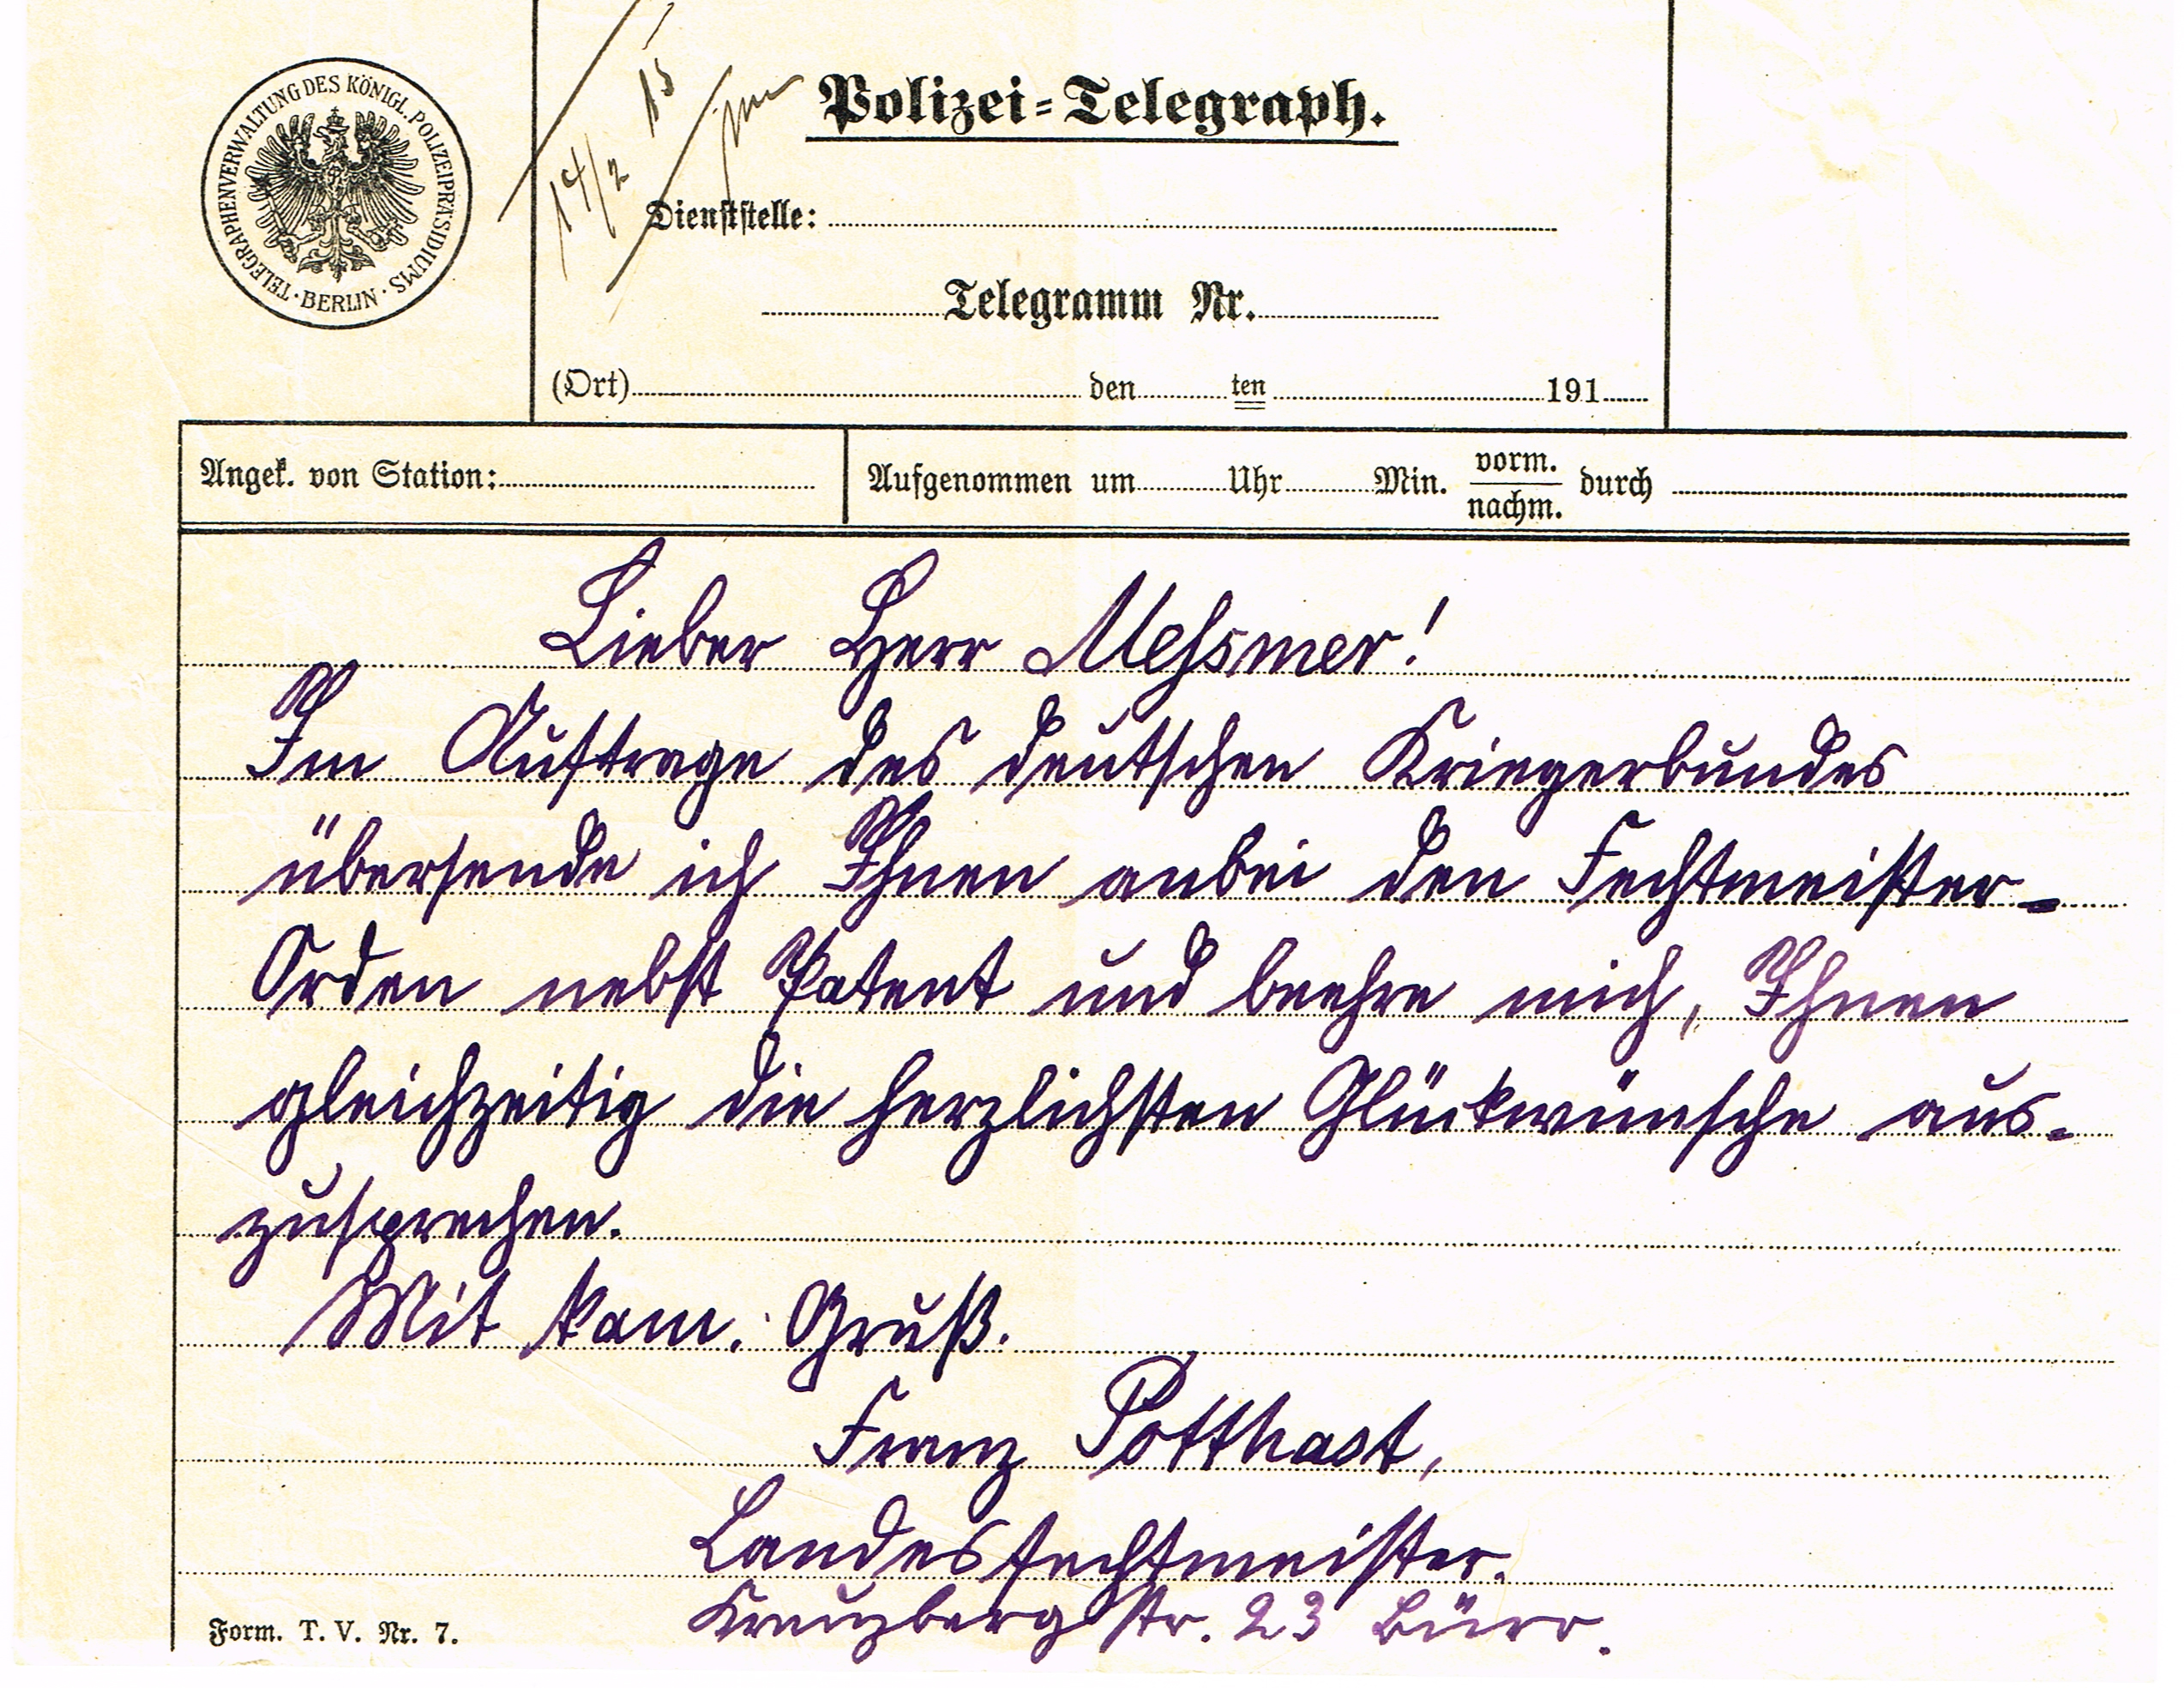 TELEGRAPHENVERWALTUNG DES KÖNIGL. POLIZEIPRÄSIDIUMS · BERLIN ·
14/2 15
Polizei-Telegraph.
Dienststelle:
Telegramm Nr.
(Ort) den ten 191
Angek. von Station:
Aufgenommen um Uhr Min. vorm. nachm. durch
Lieber Herr Messmer!
Im Auftrage des deutschen Kriegerbundes
übersende ich Ihnen anbei den Fechtmeister-
Orden nebst Patent und beehre mich, Ihnen
gleichzeitig die herzlichsten Glückwünsche aus-
zusprechen.
Mit kam. Gruß.
Franz Potthast,
Landesfechtmeister.
Kreuzbergstr. 23 Büro.
Form. T. V. Nr. 7.